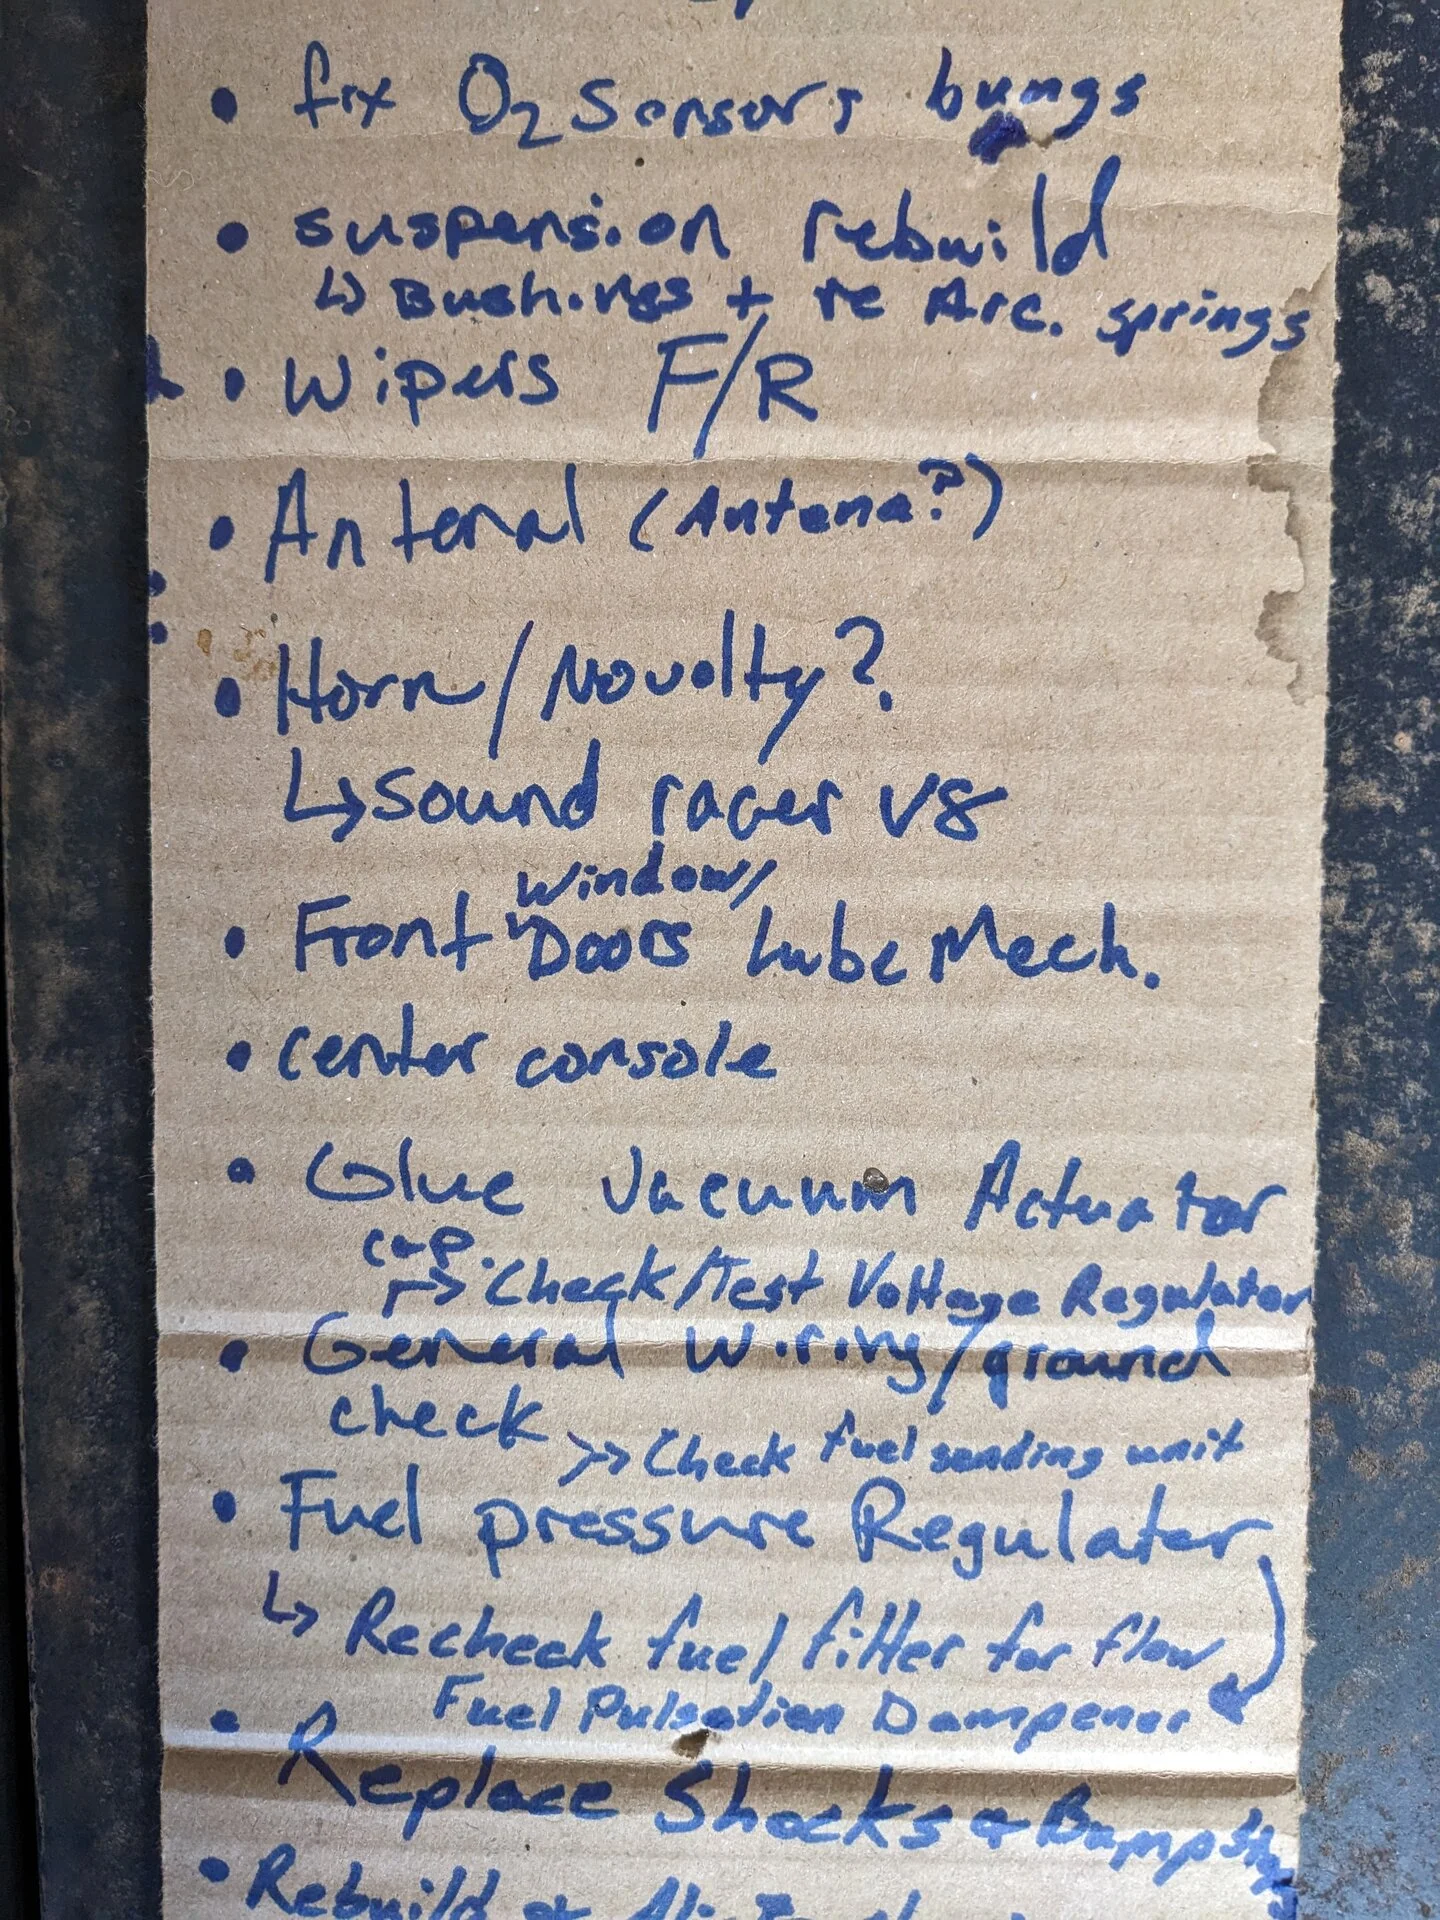 • fix O2 Sensors bungs
• suspension rebuild
↳ Bushings + re Arc. springs
• Wipers F/R
• Antenal (Antena?)
• Horn/Novolty?
↳ Sound racer V8
window/
• Front Doors Lube Mech.
• center console
• Glue Vacuum Actuator
cap.
→ Check/Test Voltage Regulator
• General Wiring/ground
check >> Check fuel sending unit
• Fuel pressure Regulater
↳ Recheck fuel filter for flow
Fuel Pulsation Dampener
• Replace Shocks & Bumpstops
• Rebuild